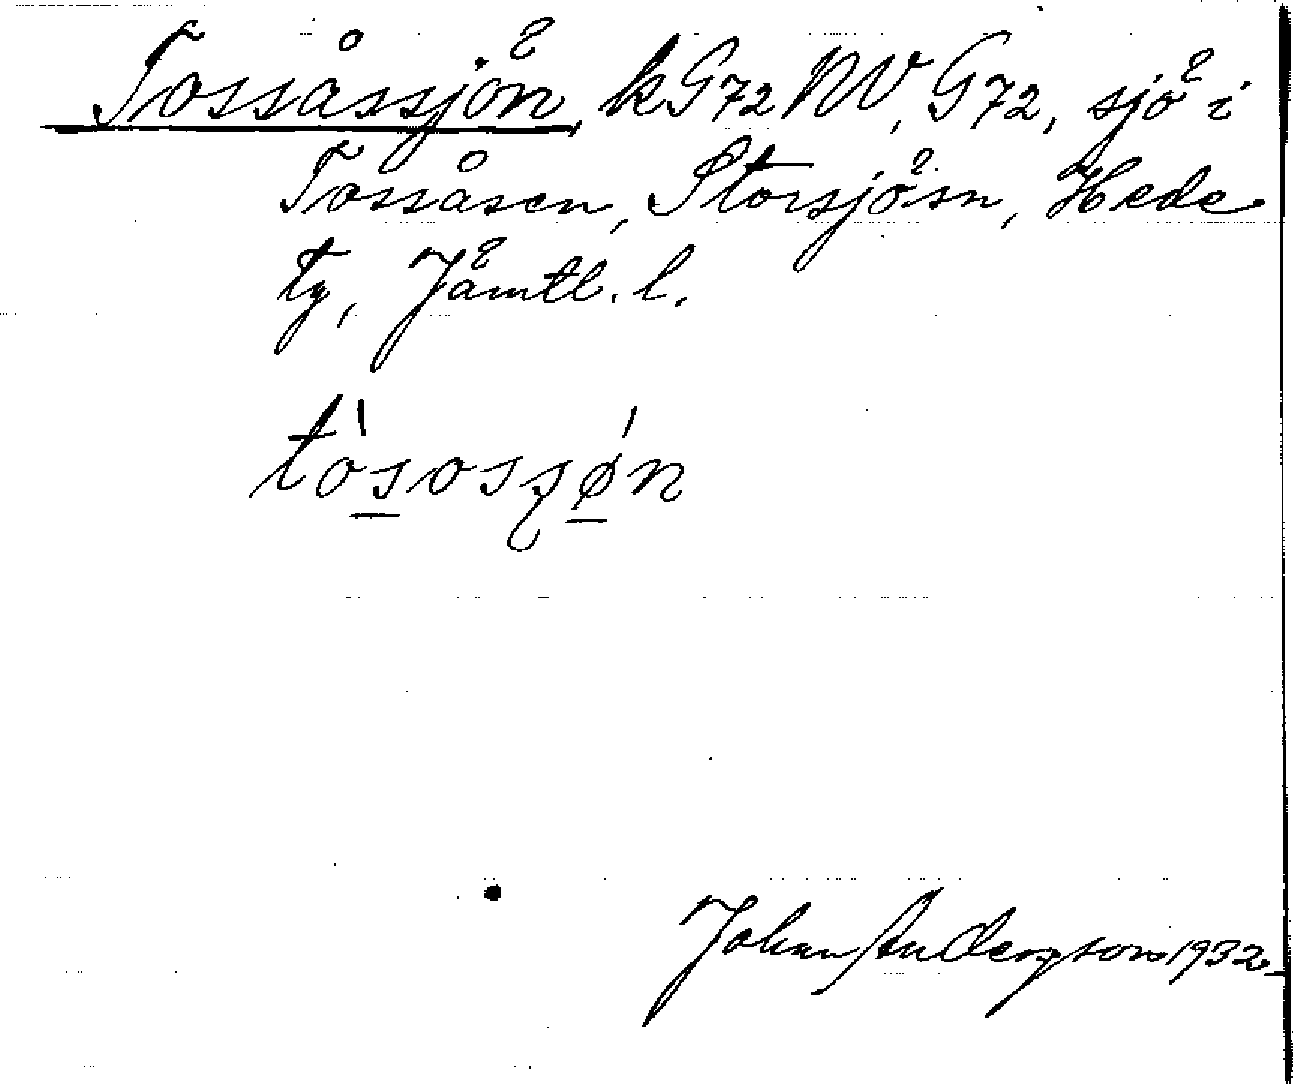 Tossåssjön, k G72 NV, G72, sjö i
Tossåsen, Storsjö sn, Hede
tg, Jämtl. l.
tòsossʂǿn
Johan Anderzson 1932